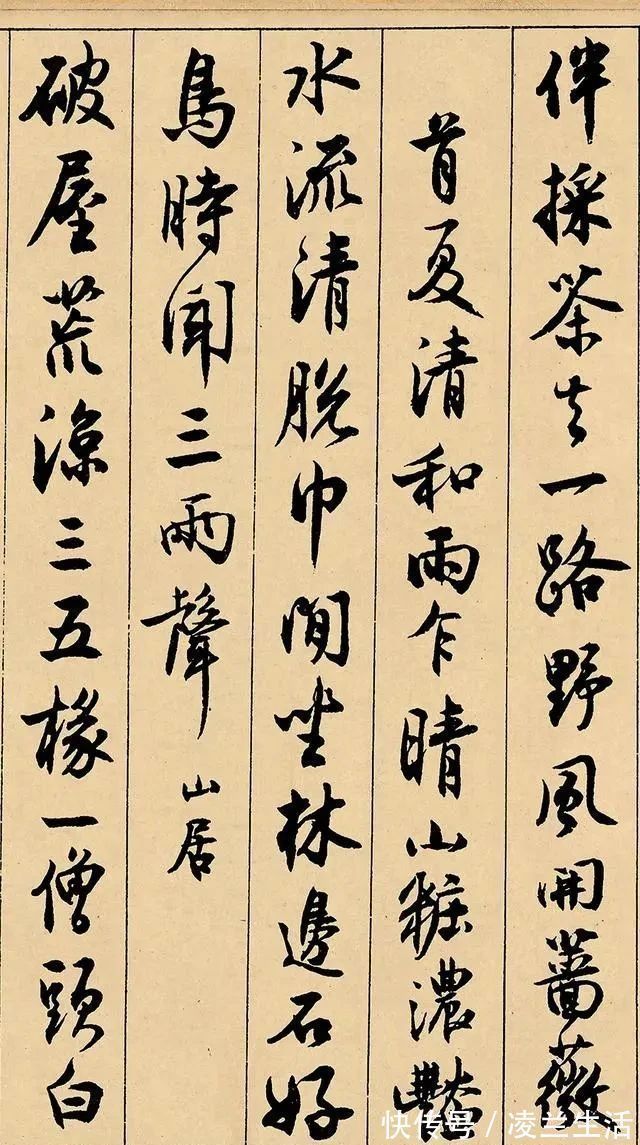 伴採茶去一路野風開薔薇
首夏清和雨乍晴山粧濃艷
水流清脱巾閒坐林邊石好
鳥時聞三兩聲 山居
破屋荒涼三五椽一僧頭白
快传号/凌兰生活